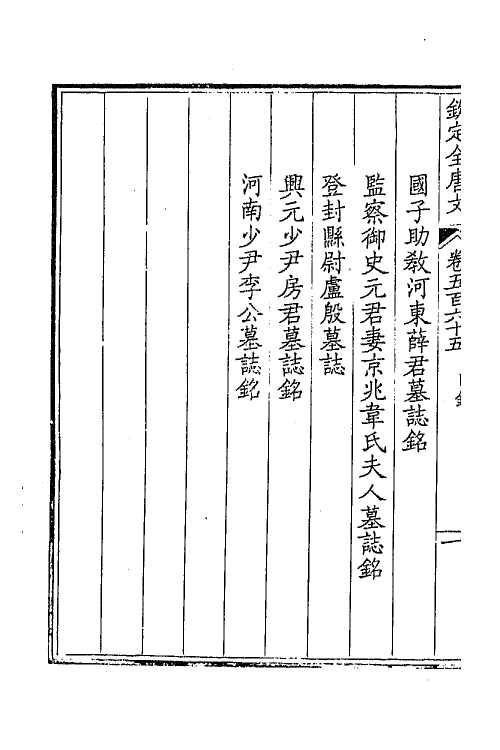 欽定全唐文 卷五百六十五 目錄 一
國子助敎河東薛君墓誌銘
監察御史元君妻京兆韋氏夫人墓誌銘
登封縣尉盧殷墓誌
興元少尹房君墓誌銘
河南少尹李公墓誌銘